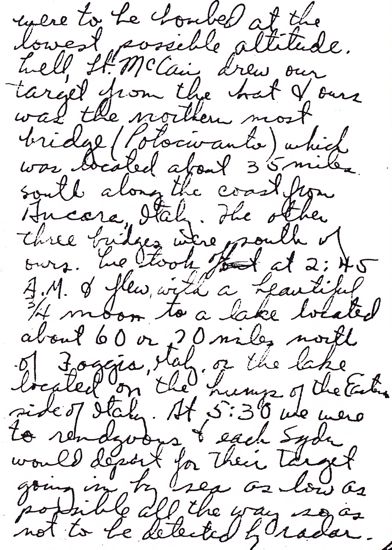 were to be bombed at the
lowest possible altitude.
Well, Lt. McCain drew our
target from the hat & ours
was the northern most
bridge (Potocivanto) which
was located about 35 miles
south along the coast from
Ancora, Italy. The other
three bridges were south of
ours. We took off at 2:45
A.M. & flew, with a beautiful
3/4 moon to a lake located
about 60 or 70 miles north
of Foggia, Italy, or the lake
located on the hump of the Eastern
side of Italy. At 5:30 we were
to rendzvous & each Sqdn
would depart for their target
going in by sea as low as
possible all the way so as
not to be detected by radar.